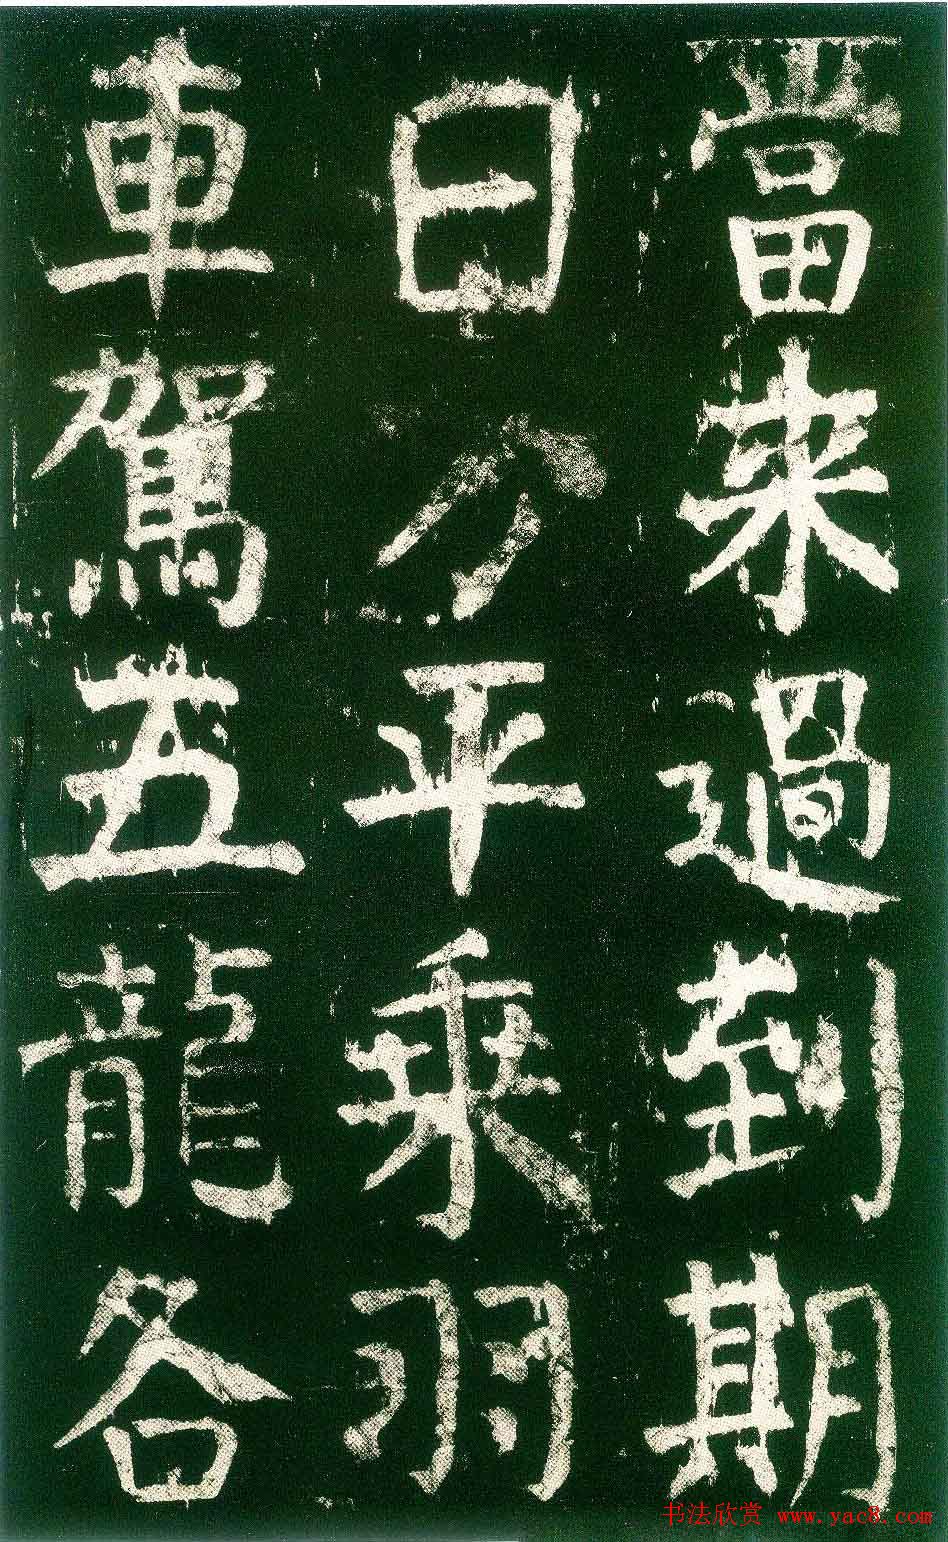 當來過到期
日方平乘羽
車駕五龍各
书法欣赏 www.yac8.com